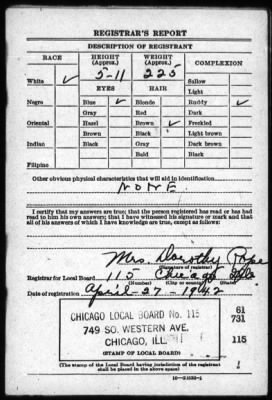 REGISTRAR'S REPORT
DESCRIPTION OF REGISTRANT
RACE HEIGHT (Approx.) WEIGHT (Approx.) COMPLEXION
5-11 225
White ✓ Sallow
EYES HAIR Light
Negro Blue ✓ Blonde Ruddy ✓
Gray Red Dark
Oriental Hazel Brown ✓ Freckled
Brown Black Light brown
Indian Black Gray Dark brown
Bald Black
Filipino
Other obvious physical characteristics that will aid in identification
NONE
I certify that my answers are true; that the person registered has read or has had
read to him his own answers; that I have witnessed his signature or mark and that
all of his answers of which I have knowledge are true, except as follows:
Mrs. Dorothy Pope
(Signature of registrar)
Registrar for Local Board 115 Chicago Ills
(Number) (City or county) (State)
Date of registration April-27-1942
CHICAGO LOCAL BOARD No. 115
749 SO. WESTERN AVE.
CHICAGO, ILL.
61
731
115
(STAMP OF LOCAL BOARD)
(The stamp of the Local Board having jurisdiction of the registrant
shall be placed in the above space)